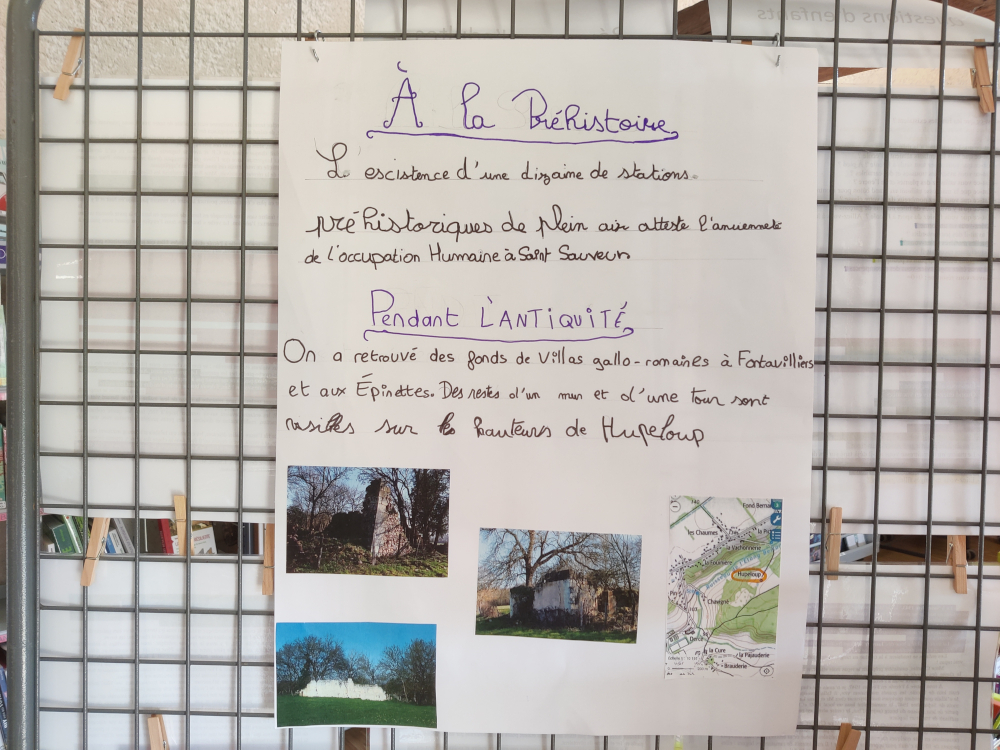 questions d'enfants
À la Préhistoire
L escistence d'une dizaine de stations.
préhistoriques de plein air atteste l'ancienneté
de l'occupation Humaine à Saint Sauveur
Pendant L'ANTIQUITÉ
On a retrouvé des fonds de Villas gallo-romaines à Fontavilliers
et aux Épinettes. Des restes d'un mur et d'une tour sont
visibles sur les hauteurs de Hupeloup
Fond Bernal
les Chaumes
la Vachonnerie
Hupeloup
Chavigné
la Cure
la Papauderie
Brauderie